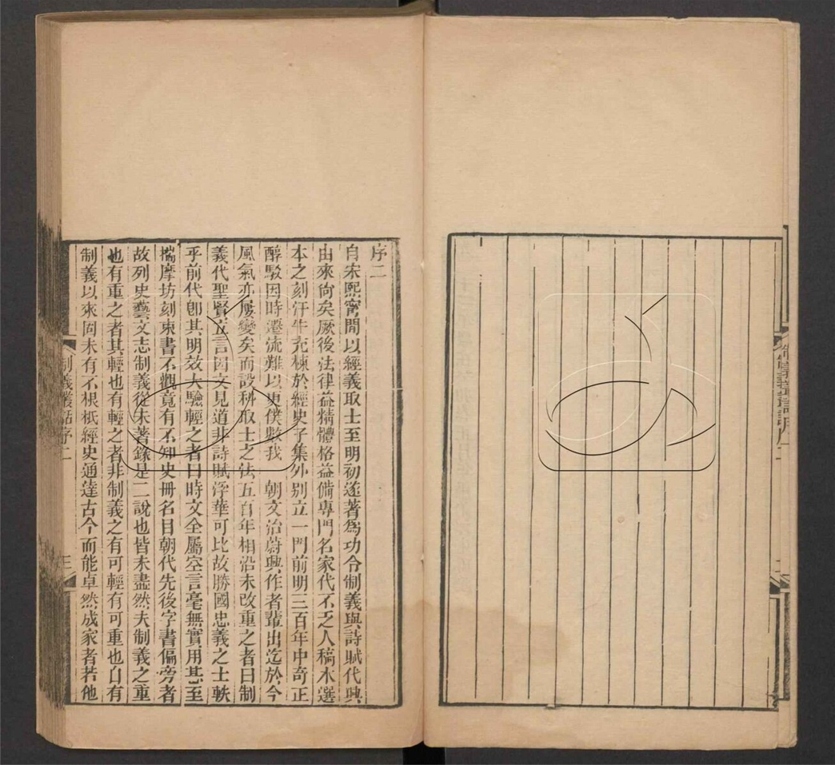 序二
自宋熙寧間以經義取士至明初遂著為功令制義與詩賦代興
由來尚矣厥後法律益精體格益備專門名家代不乏人稿木選
本之刻汗牛充棟於經史子集外別立一門前明三百年中奇正
醇駁因時遷流難以更僕數我　朝文治蔚興作者輩出迄於今
風氣亦屢變矣而設科取士之法五百年相沿未改重之者曰制
義代聖賢立言因文見道非詩賦浮華可比故勝國忠義之士軼
乎前代卽其明效大驗輕之者曰時文全屬空言毫無實用甚至
揣摩坊刻束書不觀竟有不知史冊名目朝代先後字書偏旁者
故列史藝文志制義從未著錄是二說也皆未盡然夫制義之重
也有重之者其輕也有輕之者非制義之有可輕有可重也自有
制義以來固未有不根柢經史通達古今而能卓然成家者若他
制義叢話序二
三